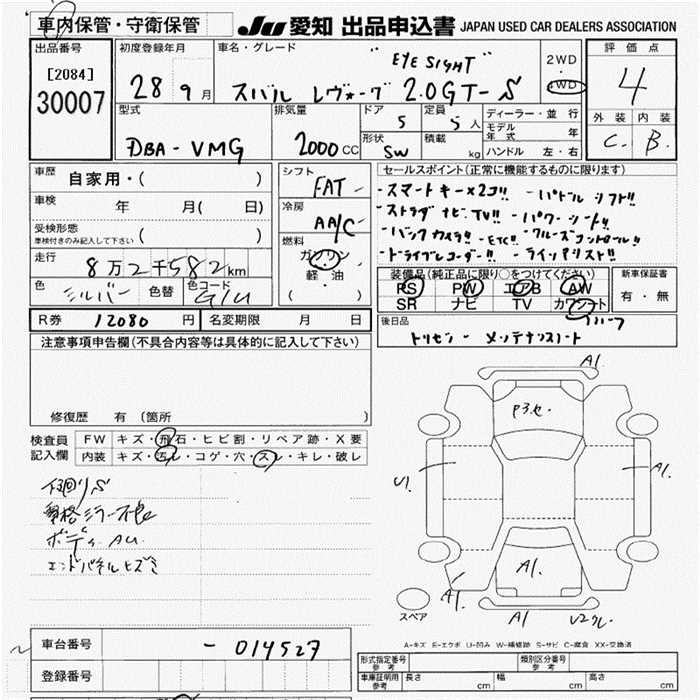 車内保管・守衛保管
JU 愛知 出品申込書 JAPAN USED CAR DEALERS ASSOCIATION
出品番号
[2084]
30007
初度登録年月
28 9月
車名・グレード
"EYE SIGHT"
スバル レヴォーグ 2.0GT-S
2WD
・
4WD
評価点
4
外装 内装
C. B.
型式
DBA-VMG
排気量
2000 CC
ドア
5
定員
5人
形状
SW
積載
kg
ディーラー・並行
モデル年式 年
ハンドル 左・右
車歴 自家用・( )
車検 年 月( 日)
受検形態
車検付きのみ記入して下さい ( )
走行 8万2千582km
色 シルバー 色替 色コード G1U
シフト
FAT
冷房
AAC
燃料
ガソリン
軽・油
( )
セールスポイント(正常に機能するものに限ります)
・スマートキー×2コ!! ・パドルシフト!!
・ストラダナビTV!! ・パワーシート!!
・バックカメラ!! ・ETC!! ・クルーズコントロール!!
・ドライブレコーダー!! ・ラインアシスト!!
装備品(純正品に限り○をつけてください)
PS PW エアB AW
SR ナビ TV カワシート
ハーフ
新車保証書
有・無
R券 12080 円 名変期限 月 日
後日品
トリセツ メンテナンスノート
注意事項申告欄(不具合内容等は具体的に記入して下さい)
修復歴 有(箇所 )
検査員記入欄
FW キズ・飛石・ヒビ割・リペア跡・X要
内装 キズ・汚レ・コゲ・穴・スレ・キレ・破レ
下廻りS
ボディAU
エンドパネルヒズミ
A1.
U1
A1.
A1.
A1.
A1
スペア
A-キズ E-エクボ U-凹み W-補修跡 S-サビ C-腐食 XX-交換済
車台番号 -014527
登録番号
形式指定番号 参考
類別区分番号 参考
車庫証明用 参考 長さ cm 幅 cm 高さ cm